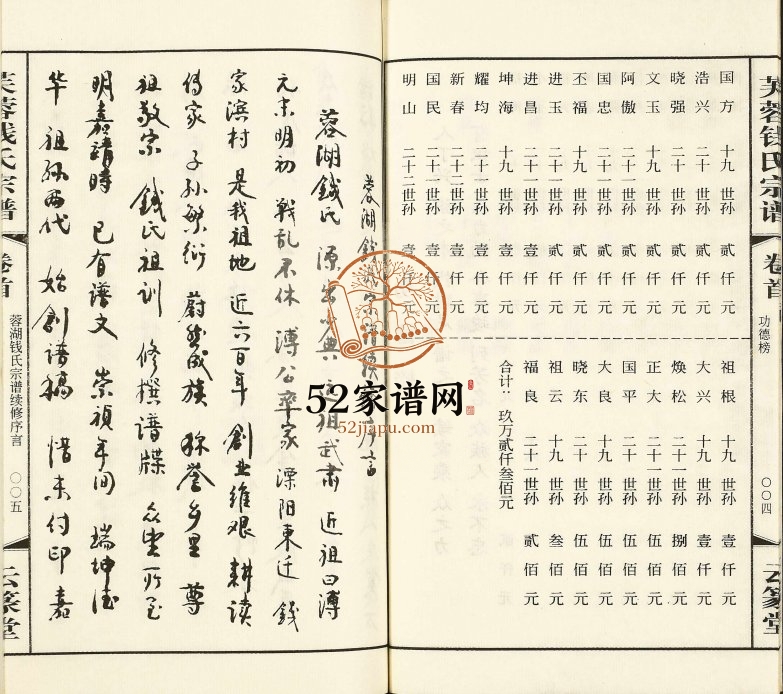 芙蓉钱氏宗谱 卷首 功德榜 〇〇四 云篆堂
国方 十九世孙 贰仟元
浩兴 十九世孙 贰仟元
晓强 二十一世孙 贰仟元
文玉 十九世孙 贰仟元
阿傲 二十一世孙 贰仟元
国忠 二十一世孙 贰仟元
丕福 十九世孙 贰仟元
进玉 二十一世孙 贰仟元
进昌 二十一世孙 壹仟元
坤海 十九世孙 壹仟元
耀均 二十二世孙 壹仟元
新春 二十二世孙 壹仟元
国民 二十二世孙 壹仟元
明山 二十二世孙 壹仟元
祖根 十九世孙 壹仟元
大兴 十九世孙 壹仟元
焕松 二十一世孙 捌佰元
正大 二十一世孙 伍佰元
国平 二十一世孙 伍佰元
大良 十九世孙 伍佰元
晓东 二十一世孙 伍佰元
祖云 十九世孙 叁佰元
福良 二十一世孙 贰佰元
合计：玖万贰仟叁佰元
蓉湖钱氏宗谱续修序言
蓉湖钱氏 源出 祖武肃 近祖曰溥
元末明初 戰乱不休 溥公率家 溧阳東迁 钱
家浜村 是我祖地 近六百年 創业维艰 耕读
传家 子孙繁衍 蔚然成族 称誉乡里 尊
祖敬宗 钱氏祖训 修撰谱牒 众望所
明嘉靖時 已有谱文 崇禎年间 瑞坤
华 祖孙两代 始創谱稿 惜未付印 嘉
芙蓉钱氏宗谱 卷首 蓉湖钱氏宗谱续修序言 〇〇五 云篆堂
52家谱网
52jiapu.com